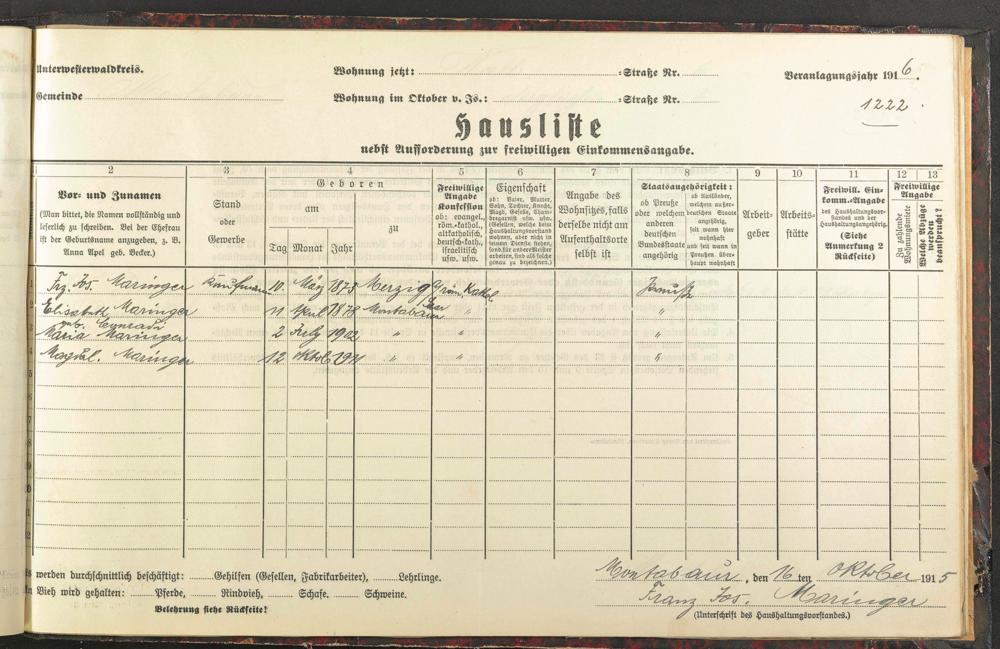 Unterwesterwaldkreis.
Wohnung jetzt: =Straße Nr.
Veranlagungsjahr 1916.
Gemeinde
Wohnung im Oktober v. Js.: =Straße Nr.
1222.
Hausliste
nebst Aufforderung zur freiwilligen Einkommensangabe.
1 2 3 4 5 6 7 8 9 10 11 12 13
Vor- und Zunamen
(Man bittet, die Namen vollständig und
leserlich zu schreiben. Bei der Ehefrau
ist der Geburtsname anzugeben, z. B.
Anna Apel geb. Becker.)
Stand
oder
Gewerbe
Geboren
am
zu
Tag Monat Jahr
Freiwillige
Angabe
Konfession
ob: evangel.,
röm.-kathol.,
altkatholisch,
deutsch-kath.,
israelitisch
usw. usw.
Eigenschaft
ob: Vater, Mutter,
Sohn, Tochter, Knecht,
Magd, Geselle, Cham-
bergarnist usw. usw.
(Gesellen, welche beim
Haushaltungsvorstand
wohnen, aber nicht in
seinem Dienste stehen,
sond. für andere Meister
arbeiten, sind als solche
genau zu bezeichnen.)
Angabe des
Wohnsitzes, falls
derselbe nicht am
Aufenthaltsorte
selbst ist
Staatsangehörigkeit:
ob Preuße
oder welchem
anderen
deutschen
Bundesstaate
angehörig
ob Ausländer,
welchem außer-
deutschen Staate
angehörig,
seit wann hier
wohnhaft
und seit wann in
Preußen über-
haupt wohnhaft
Arbeit-
geber
Arbeits-
stätte
Freiwill. Ein-
komm.-Angabe
des Haushaltungsvor-
standes und der
Haushaltungsangehörig.
(Siehe
Anmerkung 2
Rückseite)
Freiwillige
Angabe
Zu zahlende
Wohnungsmiete
Welche Abzüge
werden
beansprucht?
1 Frz. Jos. Maringer Kaufmann 10. März 1875 Merzig a/Saar röm. Kathol. Preuße
2 Elisabeth Maringer 11 April 1878 Montabaur " "
geb. Cymradi
3 Maria Maringer 2 July 1902 " " "
4 Magdal. Maringer 12 Oktob 1911 " " "
5
6
7
8
9
10
11
12
s werden durchschnittlich beschäftigt: Gehilfen (Gesellen, Fabrikarbeiter), Lehrlinge.
n Vieh wird gehalten: Pferde, Rindvieh, Schafe. Schweine.
Belehrung siehe Rückseite!
Montabaur, den 16 ten Oktober 1915
Franz Jos. Maringer
(Unterschrift des Haushaltungsvorstandes.)